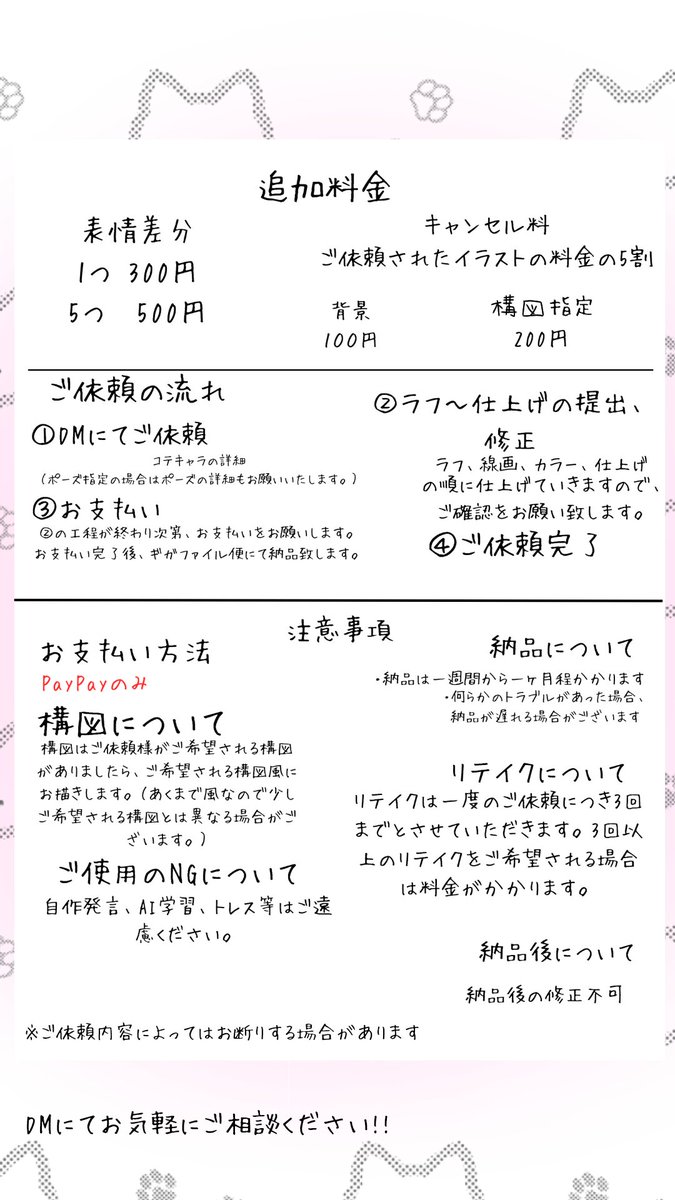 追加料金
表情差分
1つ 300円
5つ 500円
キャンセル料
ご依頼されたイラストの料金の5割
背景
100円
構図指定
200円
ご依頼の流れ
①DMにてご依頼
コテキャラの詳細
(ポーズ指定の場合はポーズの詳細もお願いいたします。)
②ラフ〜仕上げの提出、
修正
ラフ、線画、カラー、仕上げ
の順に仕上げていきますので、
ご確認をお願い致します。
③お支払い
②の工程が終わり次第、お支払いをお願いします。
お支払い完了後、ギガファイル便にて納品致します。
④ご依頼完了
注意事項
お支払い方法
PayPayのみ
構図について
構図はご依頼様がご希望される構図
がありましたら、ご希望される構図風に
お描きします。(あくまで風なので少し
ご希望される構図とは異なる場合がご
ざいます。)
ご使用のNGについて
自作発言、AI学習、トレス等はご遠
慮ください。
納品について
・納品は一週間から一ヶ月程かかります
・何らかのトラブルがあった場合、
納品が遅れる場合がございます
リテイクについて
リテイクは一度のご依頼につき3回
までとさせていただきます。3回以
上のリテイクをご希望される場合
は料金がかかります。
納品後について
納品後の修正不可
※ご依頼内容によってはお断りする場合があります
DMにてお気軽にご相談ください!!